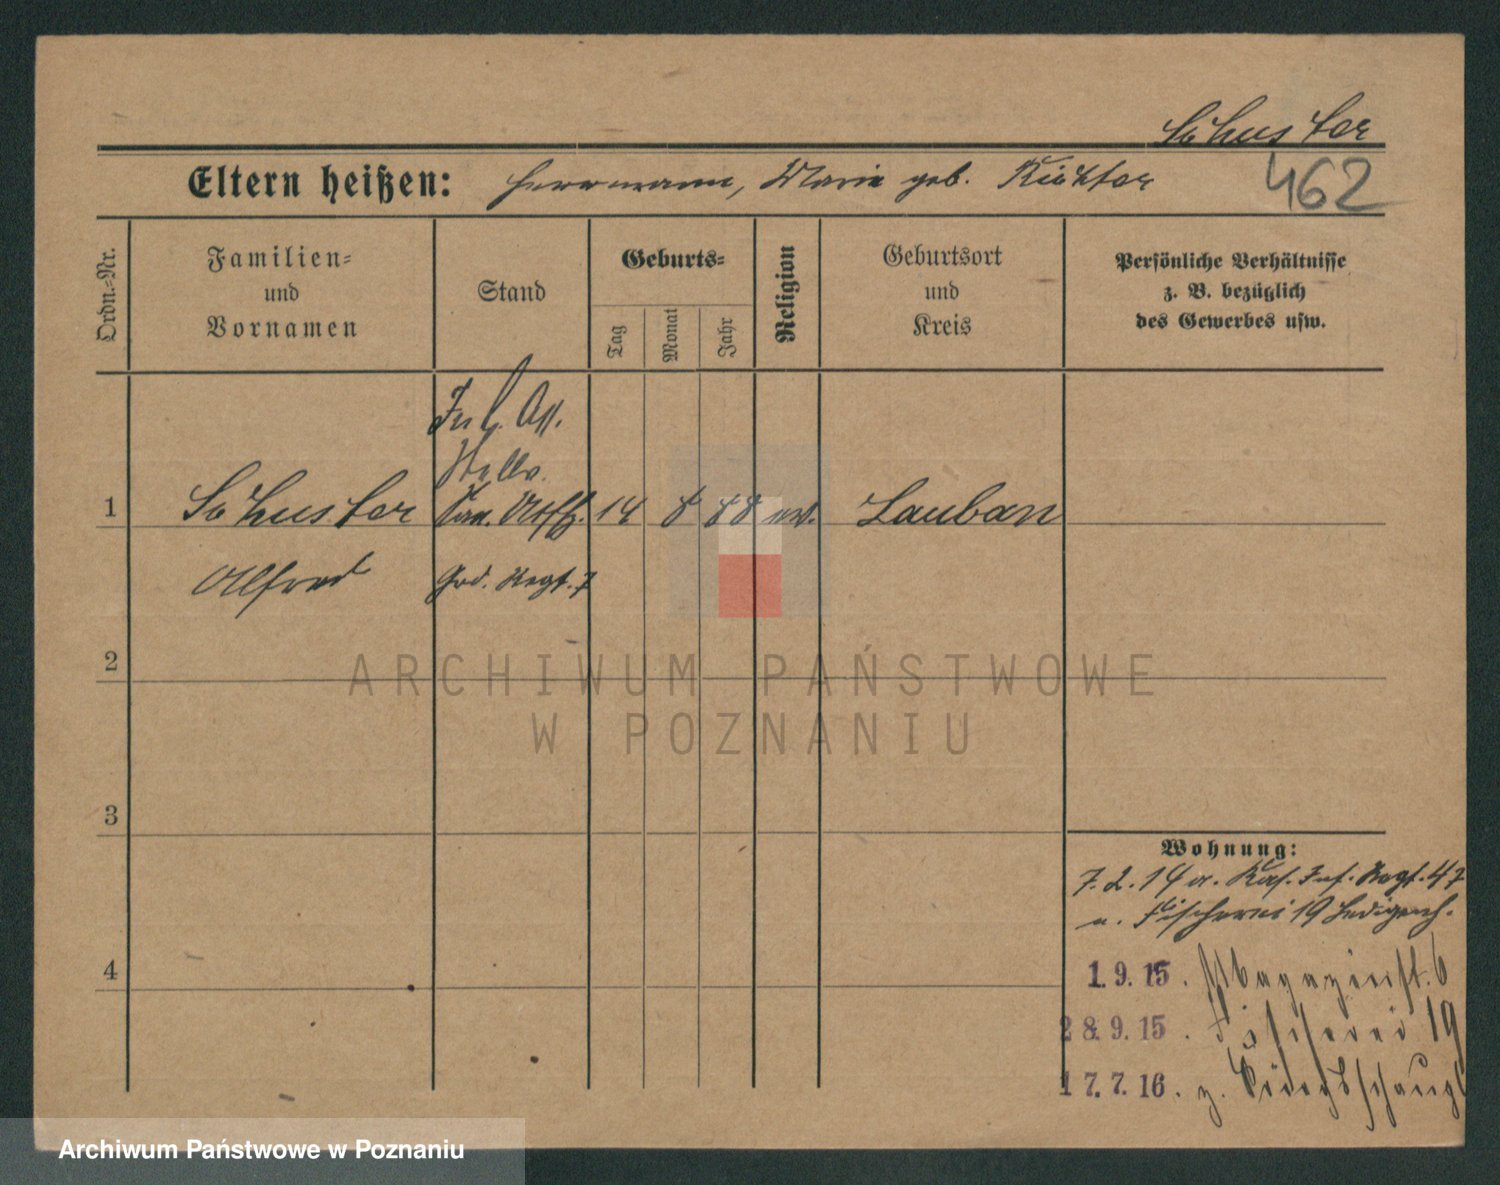 Schuster
Eltern heißen: Herrmann, Marie geb. Richter
462
Ordn.=Nr.
Familien=
und
Vornamen
Stand
Geburts=
Tag
Monat
Jahr
Religion
Geburtsort
und
Kreis
Persönliche Verhältnisse
z. B. bezüglich
des Gewerbes usw.
1 Schuster 14 8 88 ev. Lauban
Alfred Regt. 7
2
3
4
Wohnung:
7. 2. 14 a. Kas. Inf. Regt. 47
u. Fischerei 19
1. 9. 15. Magazinst. 6
28. 9. 15. Fischerei 19
17. 7. 16. z.
ARCHIWUM PAŃSTWOWE
W POZNANIU
Archiwum Państwowe w Poznaniu